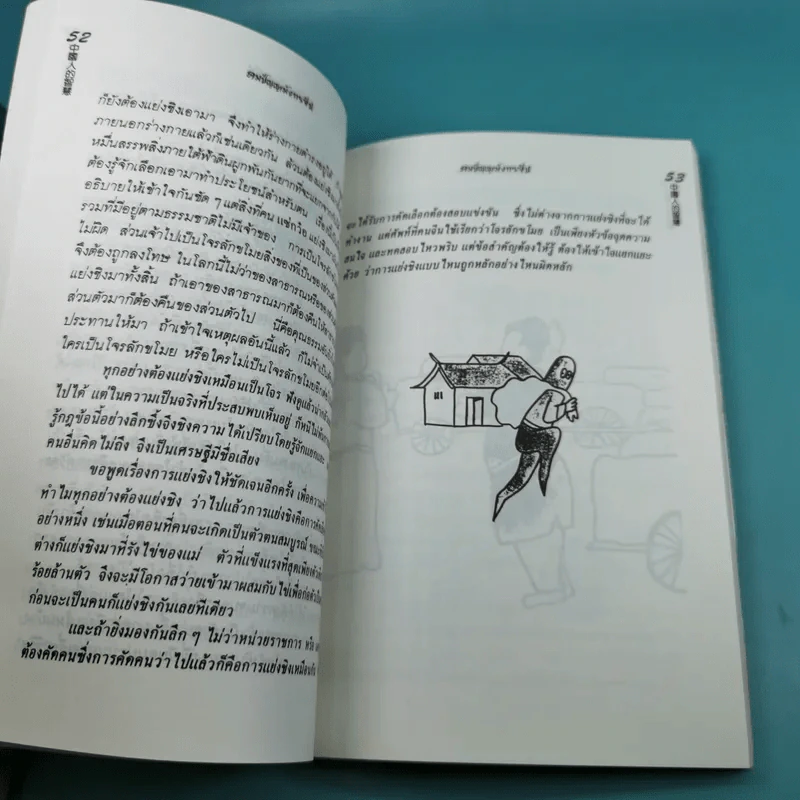 52
中國人的智慧
ก็ยังต้องแย่งชิงเอามา จึงทำให้ร่างกายดำรงอยู่ได้
ภายนอกร่างกายแล้วก็เช่นเดียวกัน ส่วนด้วย
หมื่นสรรพสิ่งภายใต้ฟ้าดินผูกพันกันยากที่จะแยก
ต้องรู้จักเลือกเอามาทำประโยชน์สำหรับตน
อธิบายให้เข้าใจกันชัด ๆ แต่สิ่งที่คน แซ่กว๋อ แย่งชิง
รวมที่มีอยู่ตามธรรมชาติไม่มีเจ้าของ การเอา
ไม่ผิด ส่วนเจ้าไปเป็นโจรลักขโมยสิ่งของที่เป็นของส่วนตัว
จึงต้องถูกลงโทษ ในโลกนี้ไม่ว่าของสาธารณะหรือของ
แย่งชิงมาทั้งสิ้น ถ้าเอาของสาธารณะมาก็ต้องคืนให้
ส่วนตัวมาก็ต้องคืนของส่วนตัวไป นี่คือคุณธรรม
ประทานให้มา ถ้าเข้าใจเหตุผลอันนี้แล้ว ก็ไม่จำเป็น
ใครเป็นโจรลักขโมย หรือใครไม่เป็นโจรลักขโมย
ทุกอย่างต้องแย่งชิงเหมือนเป็นโจร ฟังดูแล้ว
ไปได้ แต่ในความเป็นจริงที่ประสบพบเห็นอยู่ ก็หนีไม่พ้น
รู้กฎข้อนี้อย่างลึกซึ้งจึงชิงความได้เปรียบโดยรู้จักแยกแยะ
คนอื่นคิดไม่ถึง จึงเป็นเศรษฐีมีชื่อเสียง
ขอพูดเรื่องการแย่งชิงให้ชัดเจนอีกครั้ง เพื่อความ
ทำไมทุกอย่างต้องแย่งชิง ว่าไปแล้วการแย่งชิงคือการคัด
อย่างหนึ่ง เช่นเมื่อตอนที่คนจะเกิดเป็นตัวตนสมบูรณ์
ต่างก็แย่งชิงมาที่รังไข่ของแม่ ตัวที่แข็งแรงที่สุดเพียงตัว
ร้อยล้านตัว จึงจะมีโอกาสว่ายเข้ามาผสมกับไข่เพื่อก่อตัว
ก่อนจะเป็นคนก็แย่งชิงกันเลยทีเดียว
และถ้ายิ่งมองกันลึก ๆ ไม่ว่าหน่วยราชการ หรือ
ต้องคัดคนซึ่งการคัดคนว่าไปแล้วก็คือการแย่งชิงเหมือนกัน
53
中國人的智慧
จะได้รับการคัดเลือกต้องสอบแข่งขัน ซึ่งไม่ต่างจากการแย่งชิงที่จะได้
ทำงาน แต่ศัพท์ที่คนจีนใช้เรียกว่าโจรลักขโมย เป็นเพียงหัวข้อจุดความ
สนใจ และทดสอบไหวพริบ แต่ข้อสำคัญต้องให้รู้ ต้องให้เข้าใจแยกแยะ
ด้วย ว่าการแย่งชิงแบบไหนถูกหลักอย่างไหนผิดหลัก